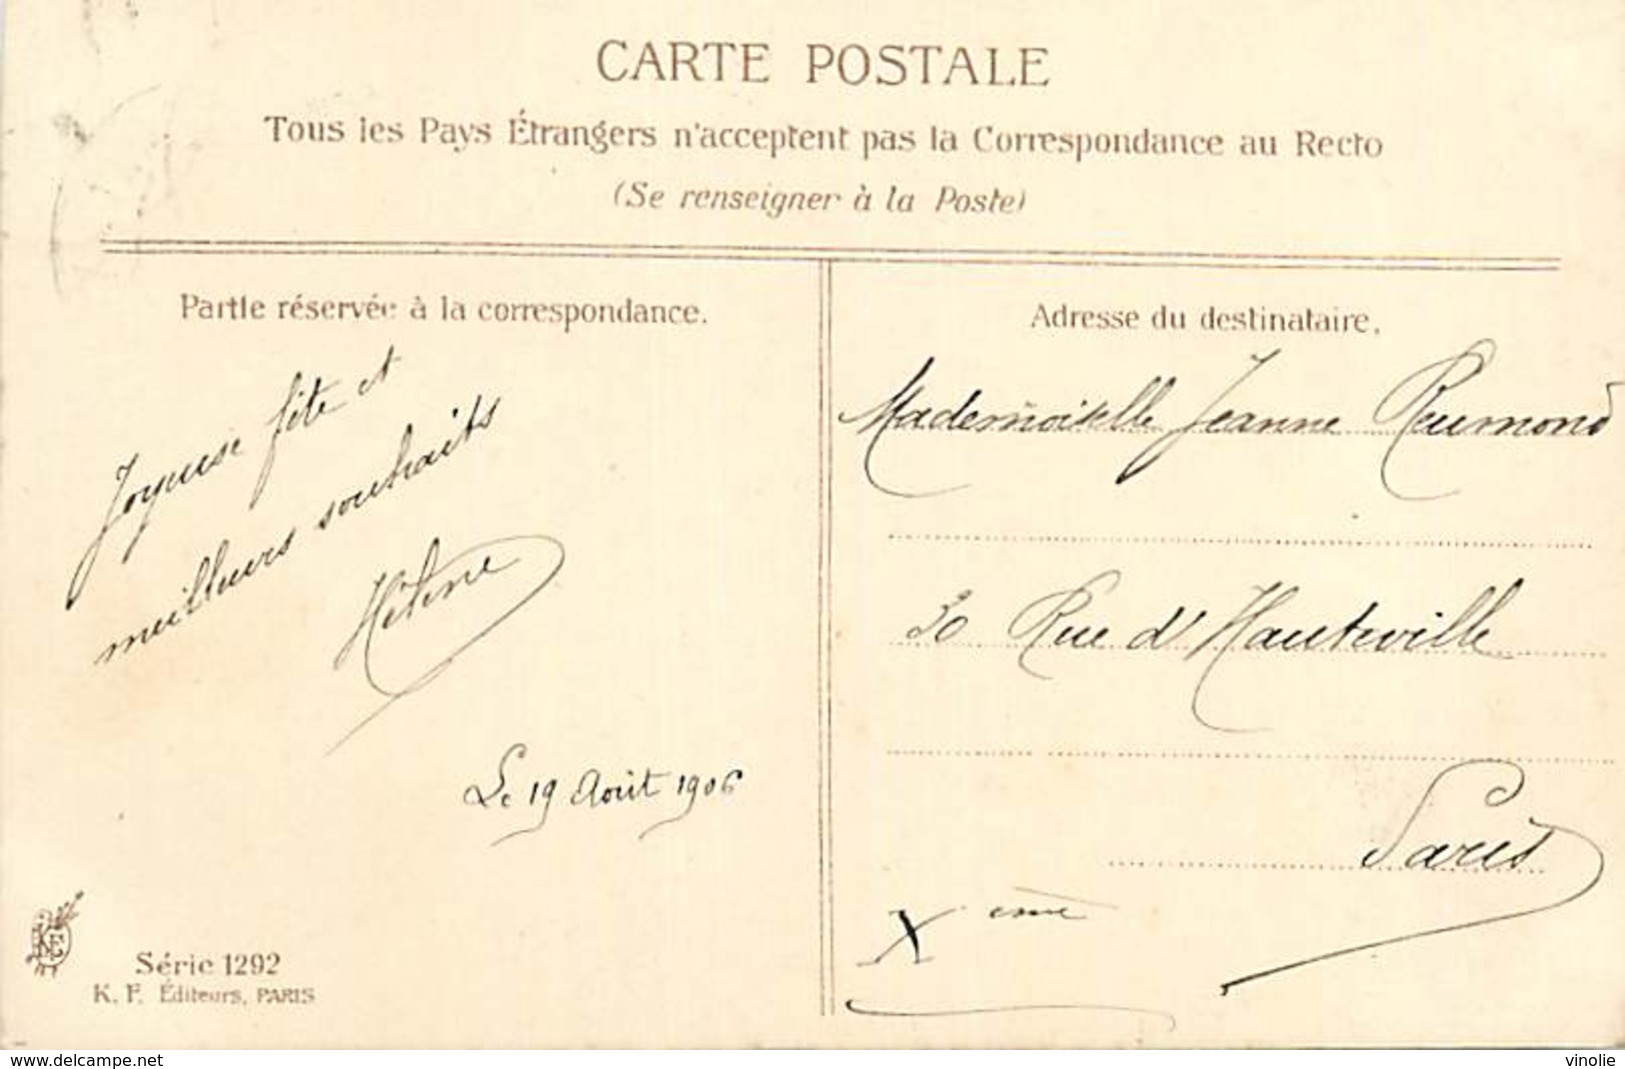 CARTE POSTALE
Tous les Pays Étrangers n'acceptent pas la Correspondance au Recto
(Se renseigner à la Poste)
Partie réservée à la correspondance.
Joyeuse fête et
meilleurs souhaits
Hélène
Le 19 Août 1906
Série 1292
K. F. Éditeurs, PARIS
Adresse du destinataire.
Mademoiselle Jeanne Reumond
30 Rue d'Hauteville
Paris
X ème
delcampe.net
vinolie